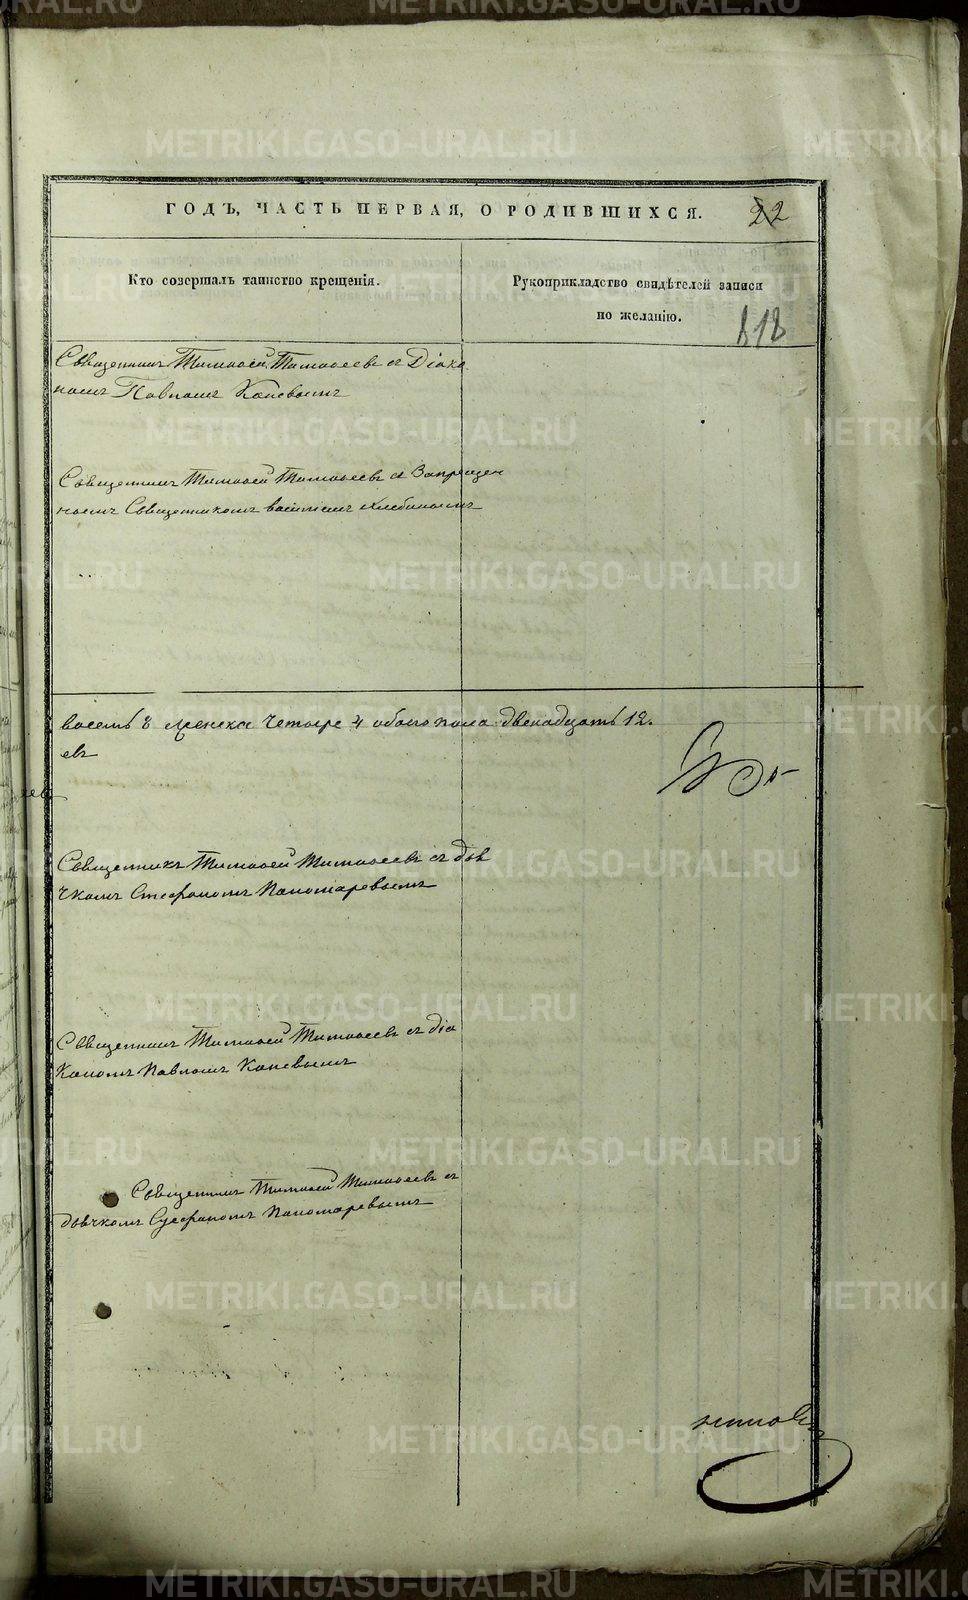 ГОДЪ, ЧАСТЬ ПЕРВАЯ, О РОДИВШИХСЯ. 22
Кто совершалъ таинство крещенія.
Рукоприкладство свидѣтелей записи
по желанію.
818
Священникъ Тимоѳей Тимоѳеевъ съ Діако
номъ Павломъ Каневымъ
Священникъ Тимоѳей Тимоѳеевъ съ Запрещен
нымъ Священникомъ Василіемъ Хлебинымъ
восемь 8 женска четыре 4 обоего пола двенадцать 12.
евъ
Священникъ Тимоѳей Тимоѳеевъ съ дья
чкомъ Стефаномъ Пономаревымъ
Священникъ Тимоѳей Тимоѳеевъ съ діа
кономъ Павломъ Каневымъ
Священникъ Тимоѳей Тимоѳеевъ съ
дьячкомъ Стефаномъ Пономаревымъ
METRIKI.GASO-URAL.RU